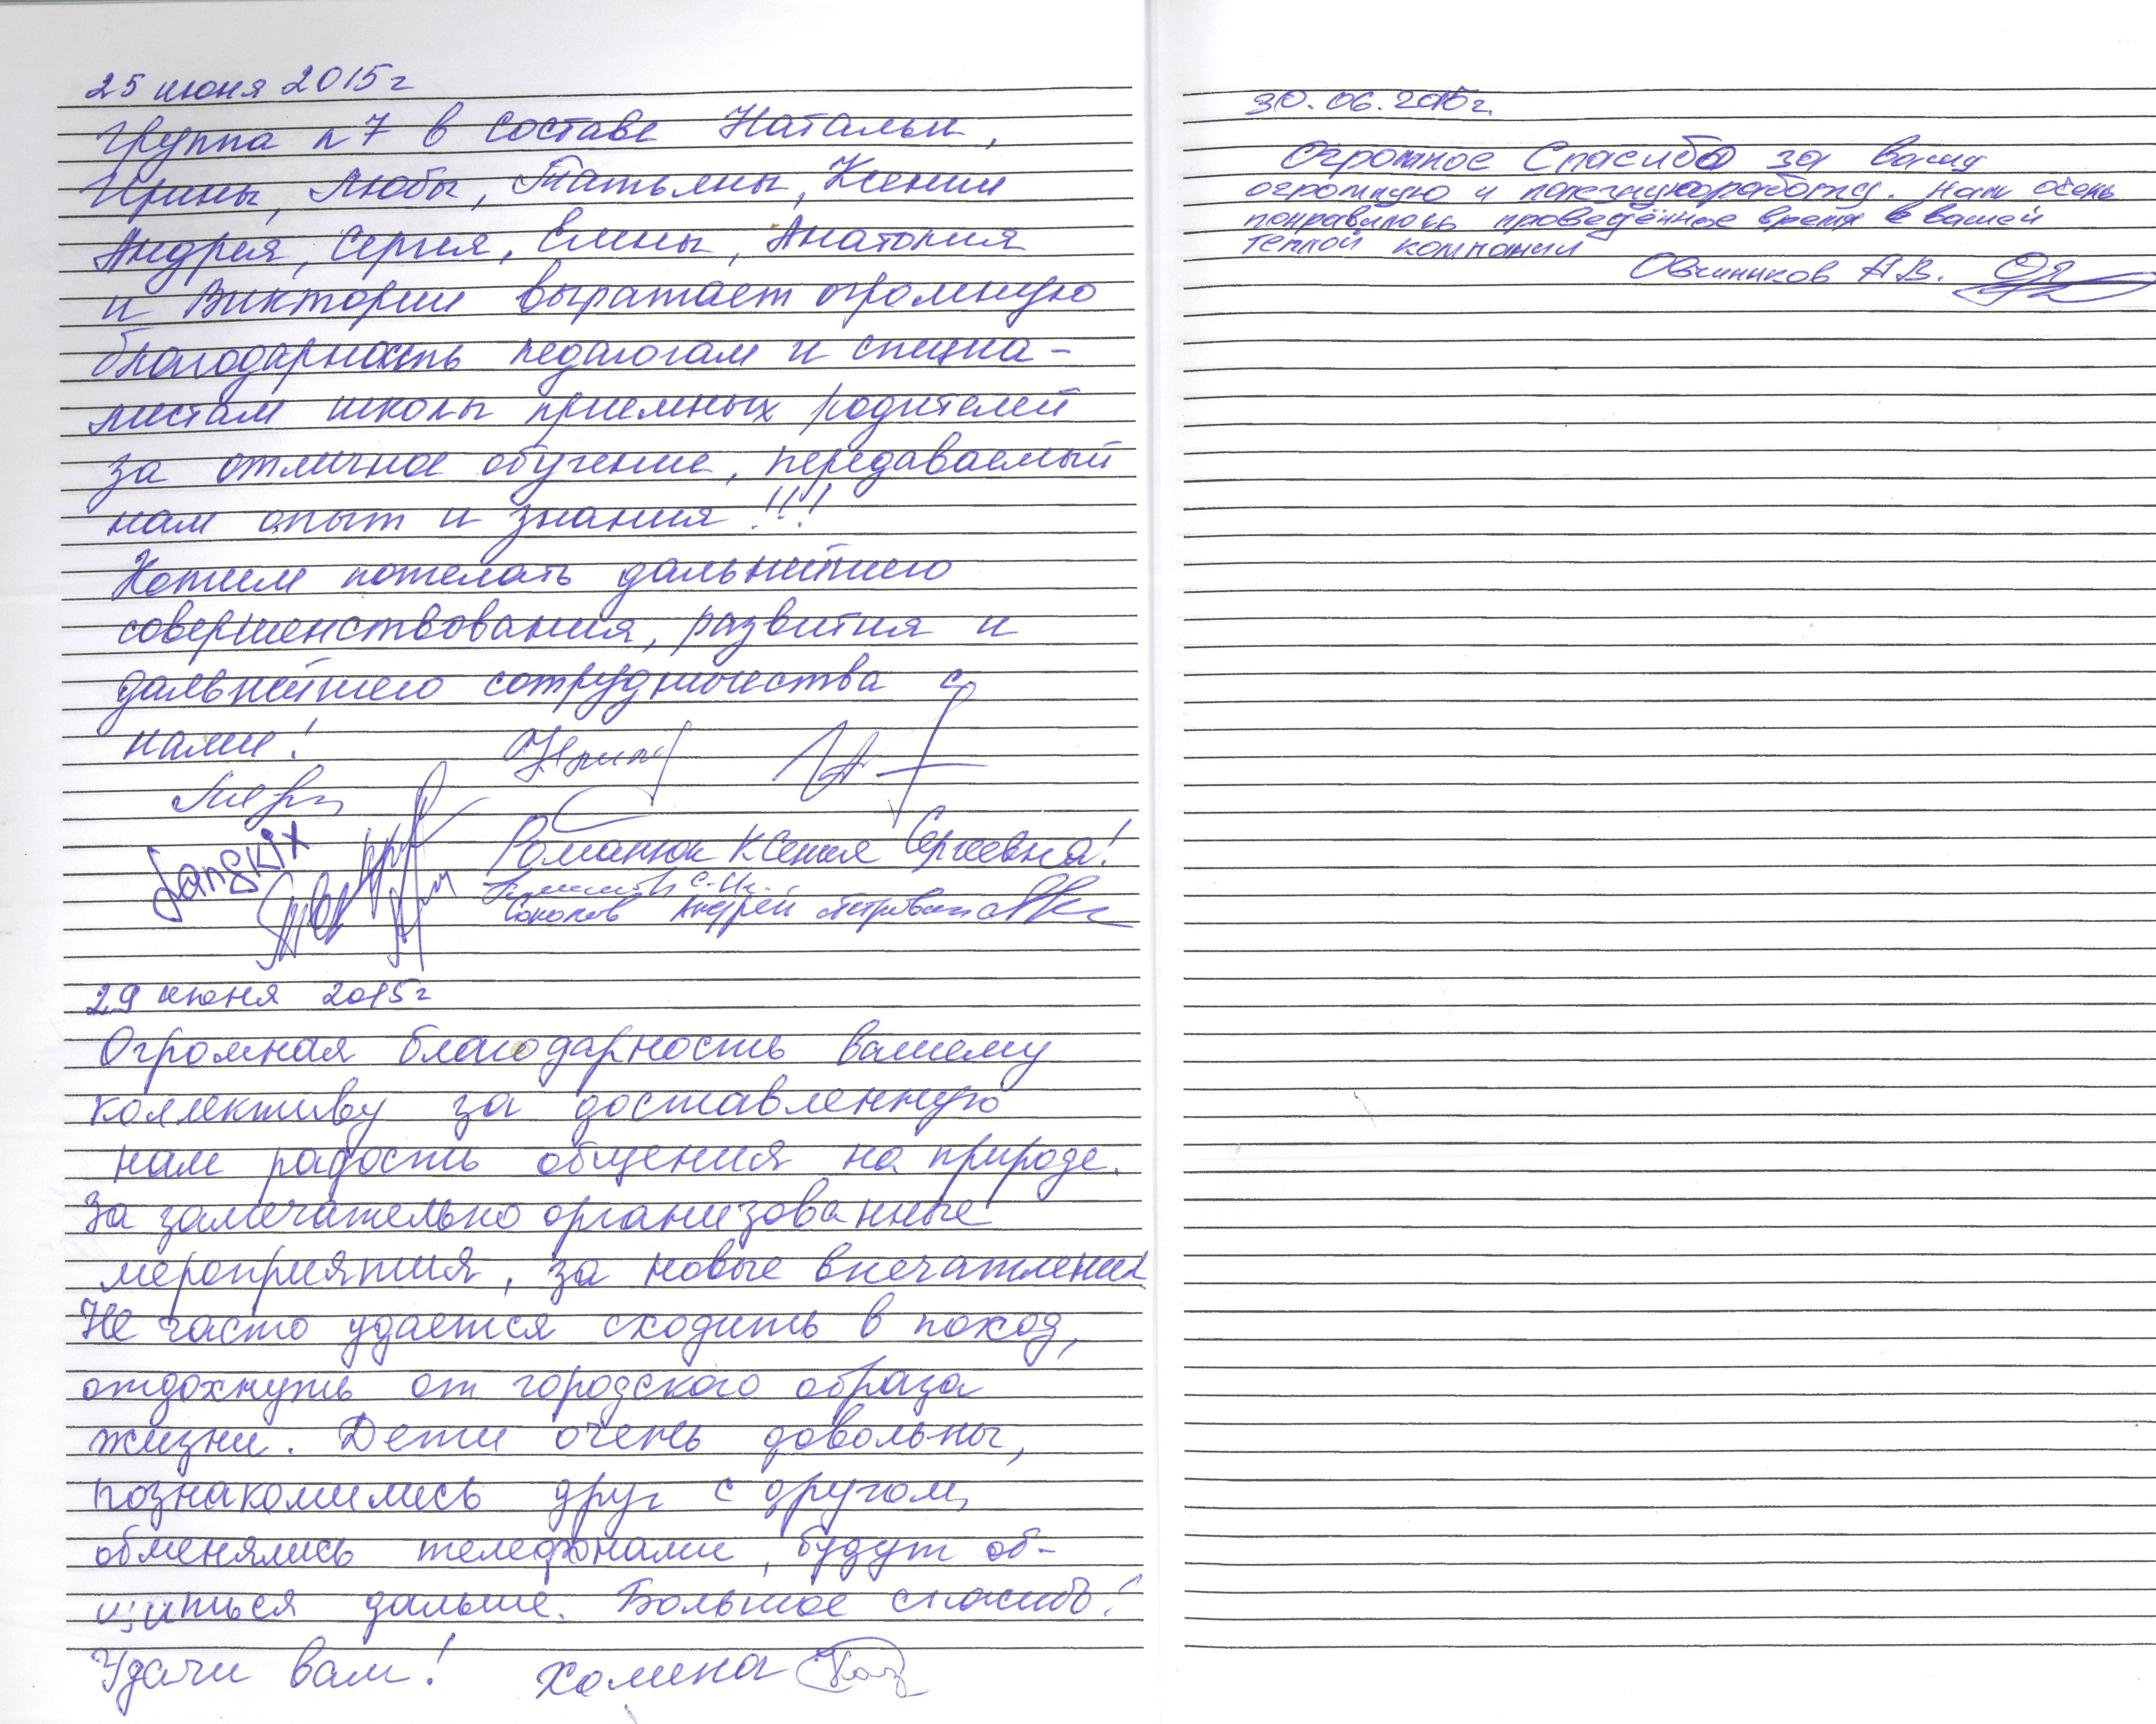 25 июня 2015г
Группа n7 в составе Натальи,
Ирины, Любы, Татьяны, Ксении
Андрея, Сергея, Елены, Анатолия
и Виктории выражает огромную
благодарность педагогам и специа-
листам школы приемных родителей
за отличное обучение, передаваемый
нам опыт и знания!!!
Хотим пожелать дальнейшего
совершенствования, развития и
дальнейшего сотрудничества с
нами!
Романюк Ксения Сергеевна!
С.И.
Соколов Андрей Петрович
29 июня 2015г
Огромная благодарность вашему
коллективу за доставленную
нам радость общения на природе.
За замечательно организованные
мероприятия, за новые впечатления
Не часто удается сходить в поход,
отдохнуть от городского образа
жизни. Дети очень довольны,
познакомились друг с другом,
обменялись телефонами, будут об-
щаться дальше. Большое спасибо!
Удачи вам! Хомена
30.06.2015г.
Огромное Спасибо за вашу
огромную и полезную работу. Нам очень
понравилось проведённое время в вашей
теплой компании
Овчиников А.В.